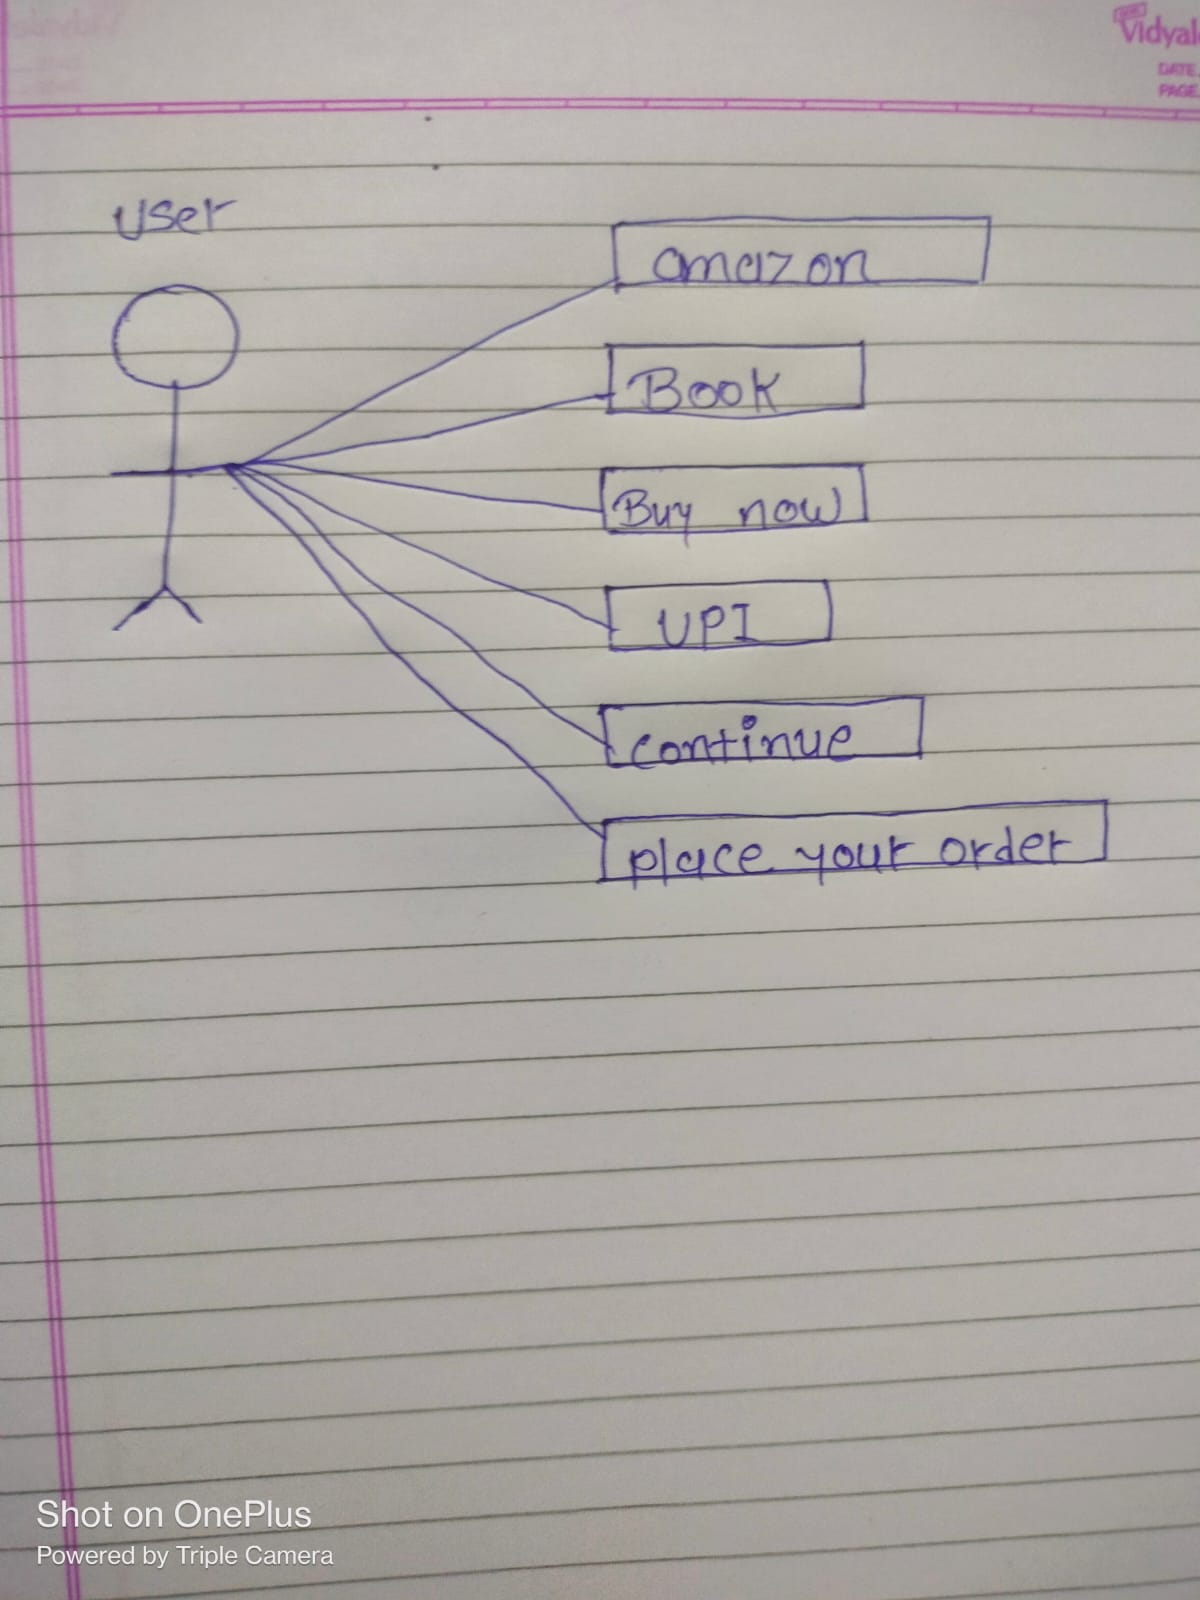 Vidyal
DATE
PAGE
user
amazon
Book
Buy now
UPI
continue
place your order
Shot on OnePlus
Powered by Triple Camera